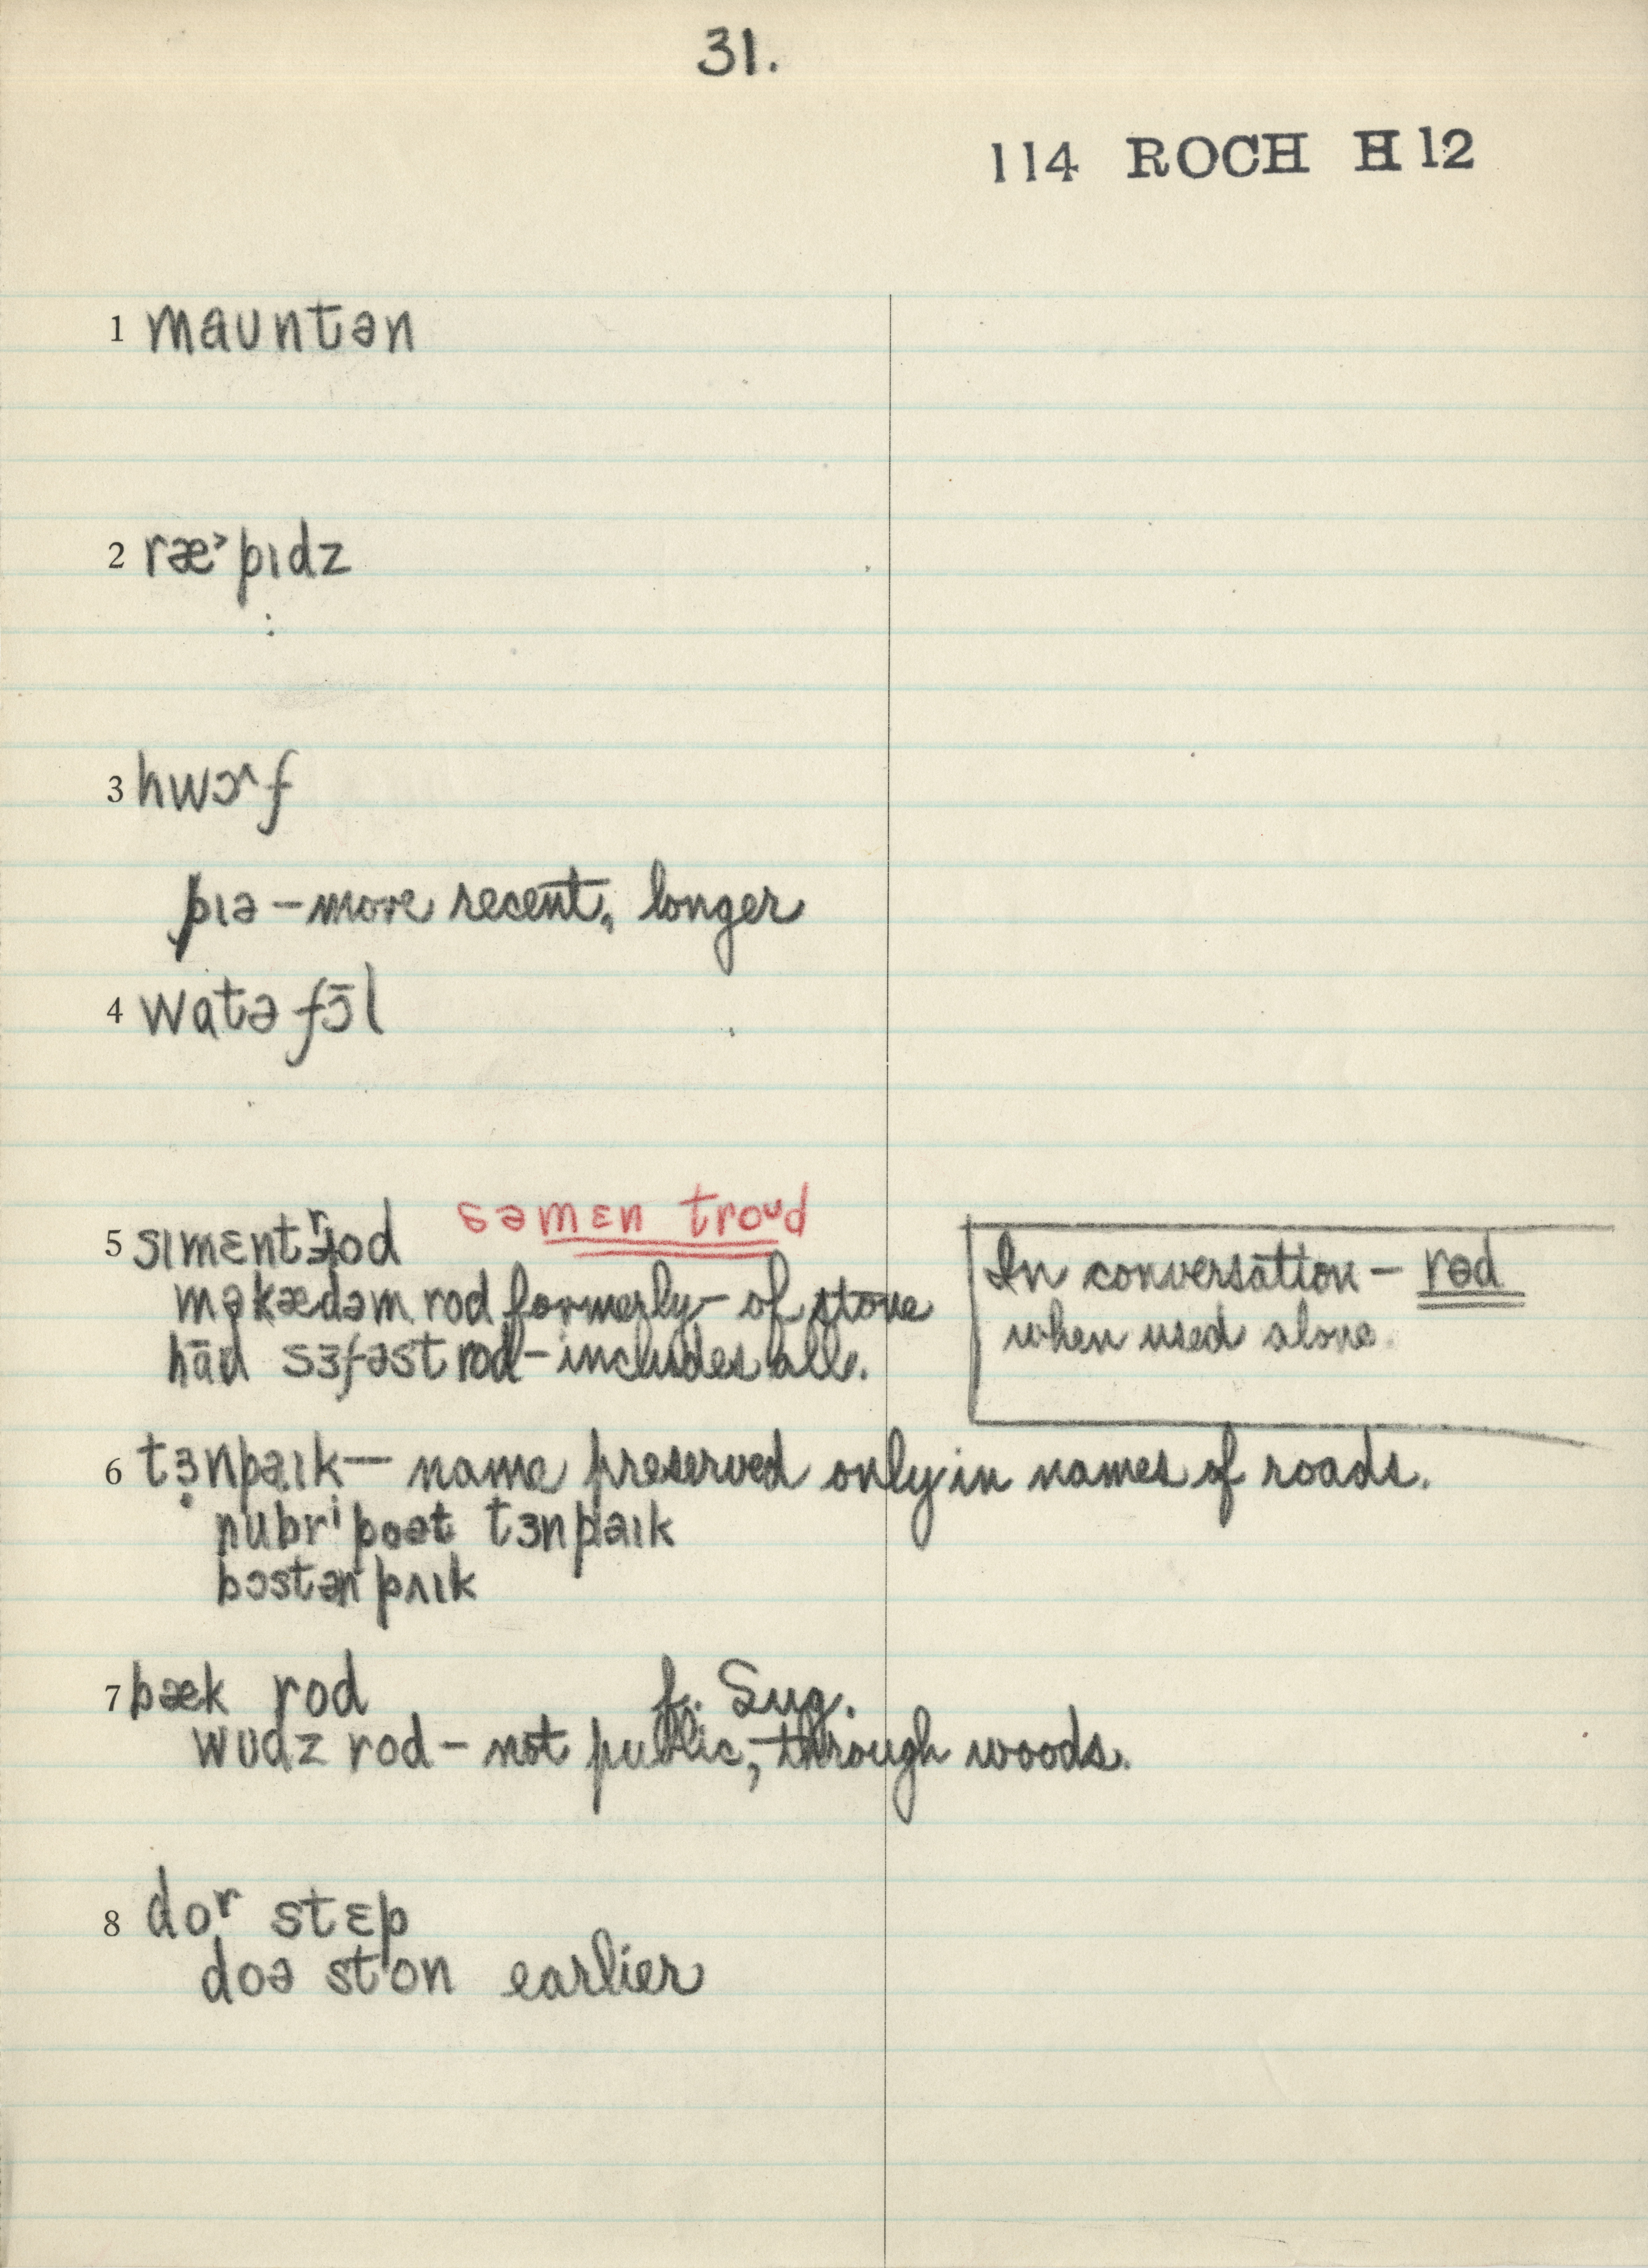 31.
114 ROCH H12
1 mauntən
2 ræ˃pɪdz
3 hwɔ˞f
pɪə – more recent, longer
4 watəfɔ̄l
5 sɪmɛnt rod səmɛn troud
məkædəm rod formerly – of stone
hād sɜfəst rod – includes all.
In conversation – rɵd
when used alone.
6 tɜnpaɪk — name preserved only in names of roads.
nubrⁱpoət tɜnpaɪk
bɔstən pʌɪk
7 bæk rod f. Sug.
wudz rod – not public, – through woods.
8 doʳ stɛp
doə ston earlier